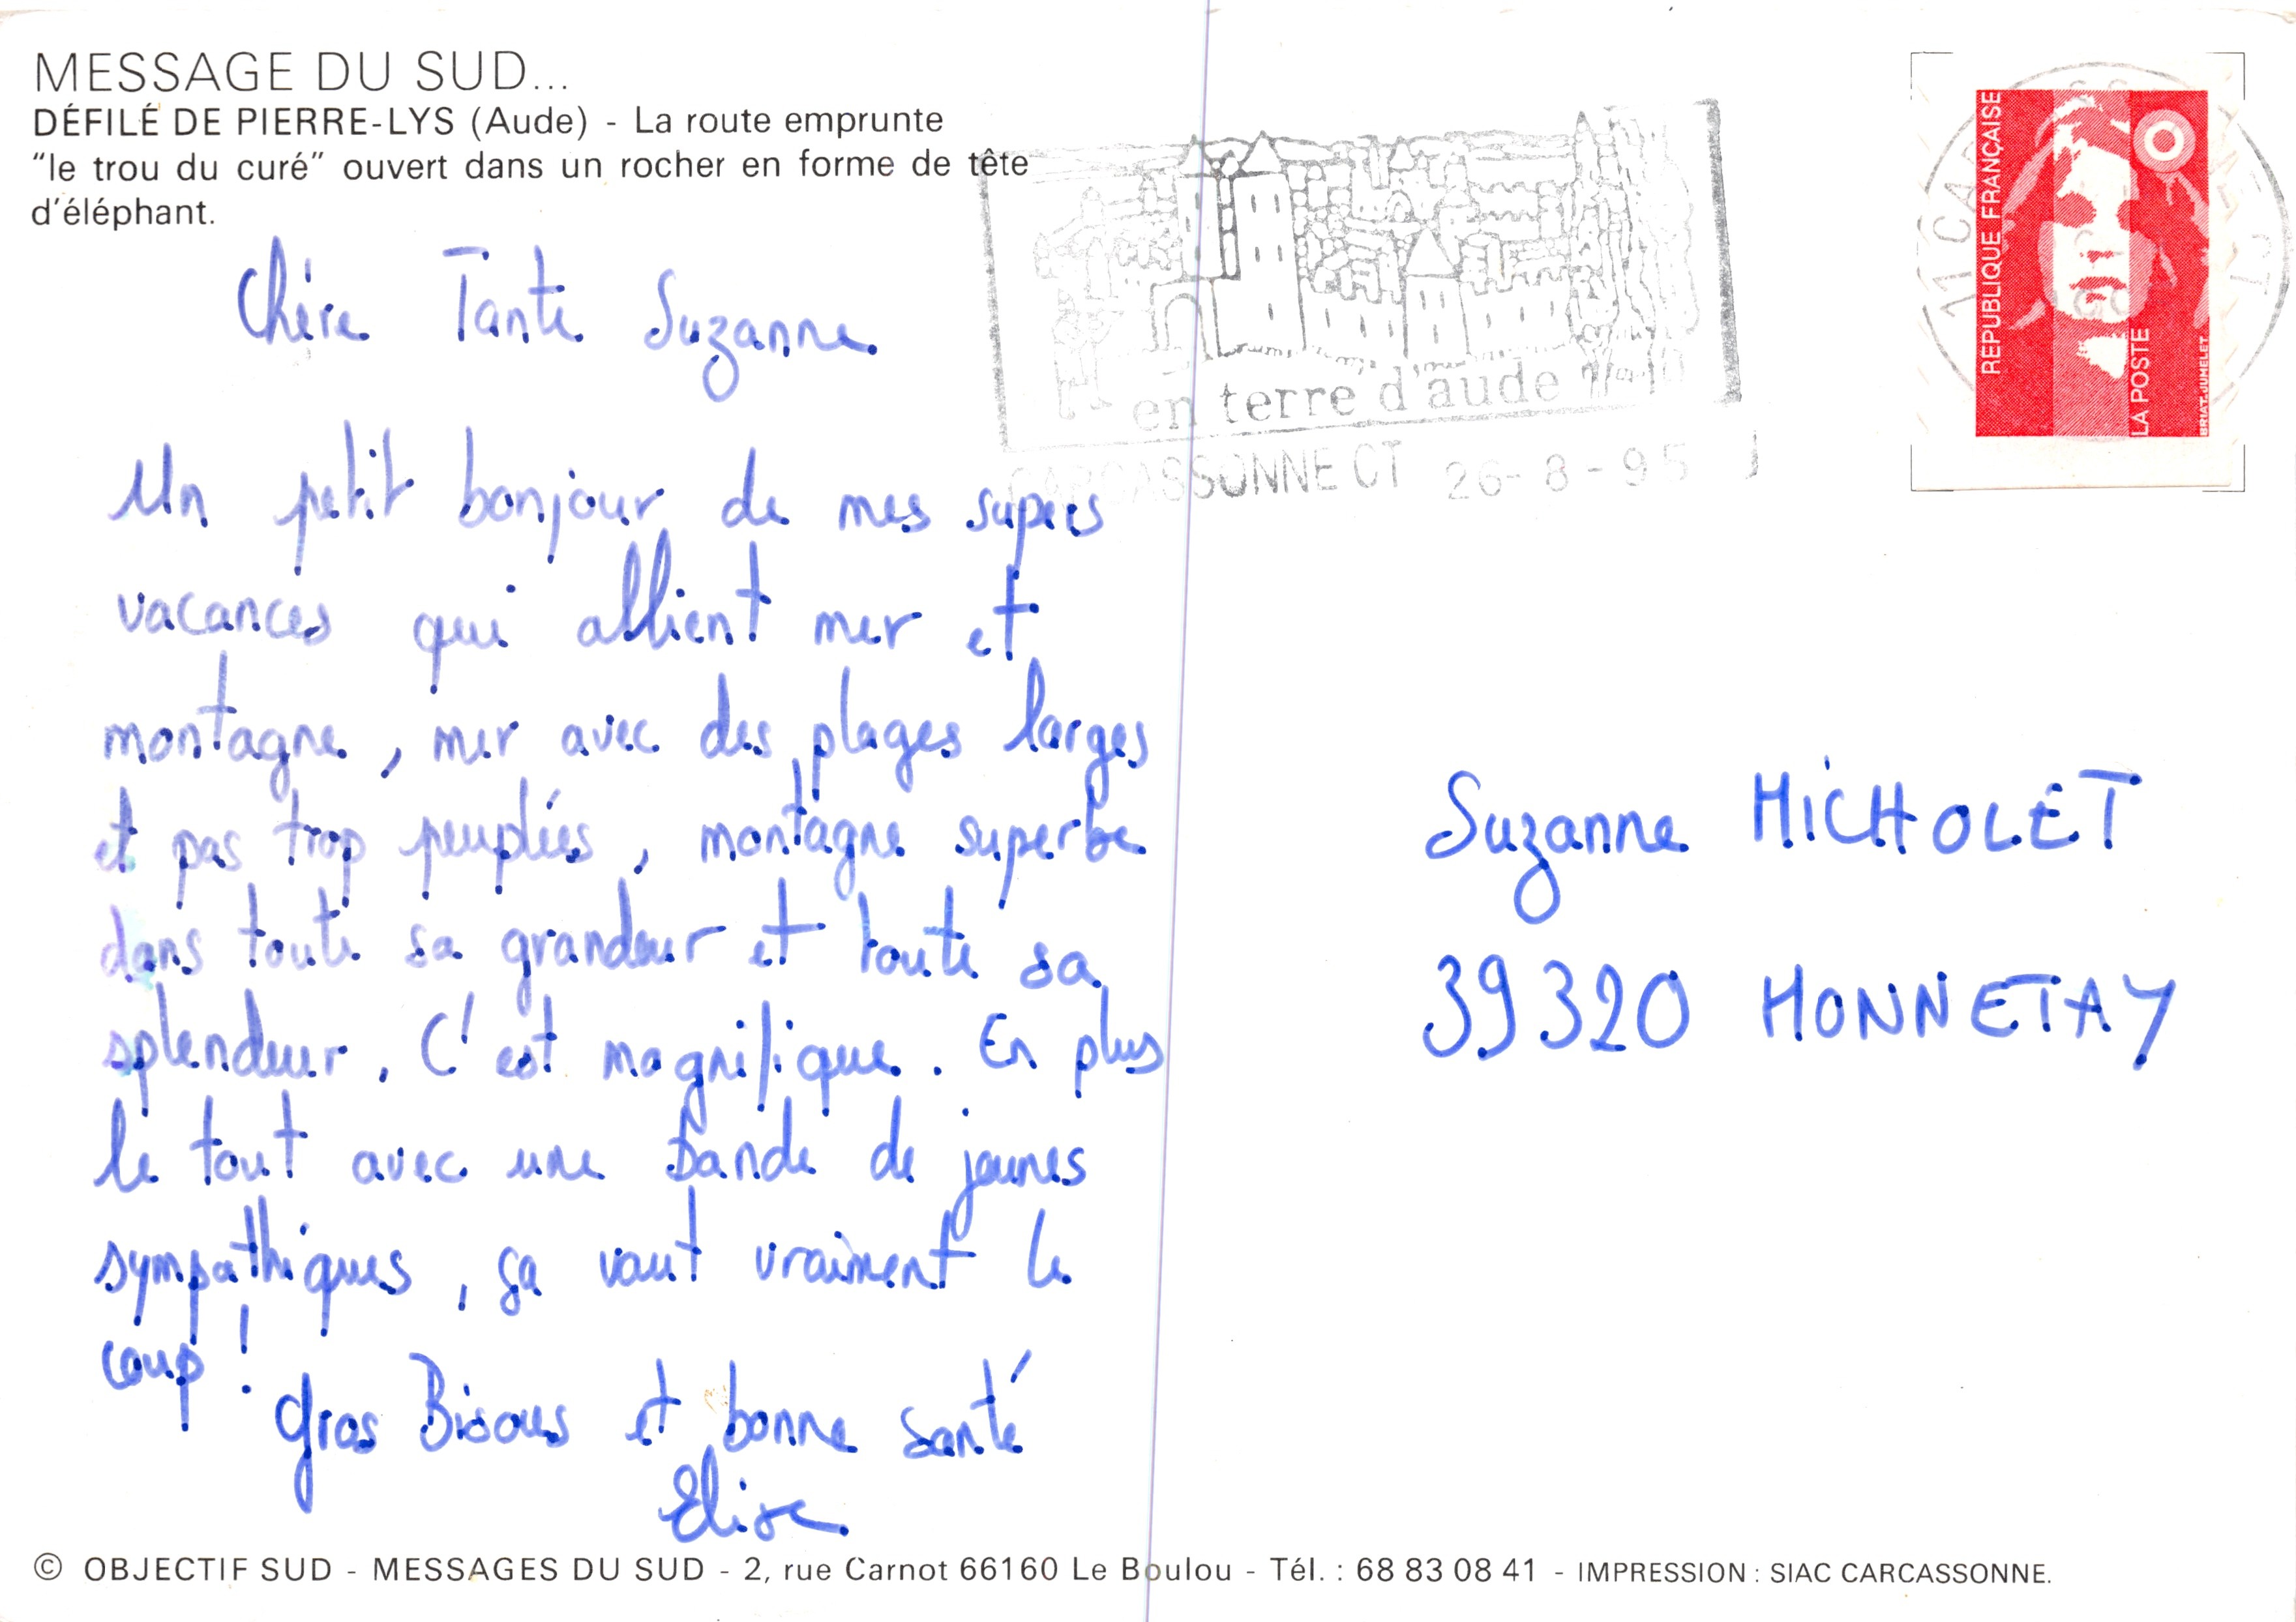 MESSAGE DU SUD...
DÉFILÉ DE PIERRE-LYS (Aude) - La route emprunte
"le trou du curé" ouvert dans un rocher en forme de tête
d'éléphant.
Chère Tante Suzanne
Un petit bonjour de mes supers
vacances qui allient mer et
montagne, mer avec des plages larges
et pas trop peuplées, montagne superbe
dans toute sa grandeur et toute sa
splendeur. C'est magnifique. En plus
le tout avec une bande de jeunes
sympathiques, ça vaut vraiment le
coup !
Gros Bisous et bonne santé
Elise
en terre d'aude
CARCASSONNE CT 26-8-95
RÉPUBLIQUE FRANÇAISE
LA POSTE
BRIAT.JUMELET
Suzanne MICHOLET
39320 MONNETAY
© OBJECTIF SUD - MESSAGES DU SUD - 2, rue Carnot 66160 Le Boulou - Tél. : 68 83 08 41 - IMPRESSION : SIAC CARCASSONNE.